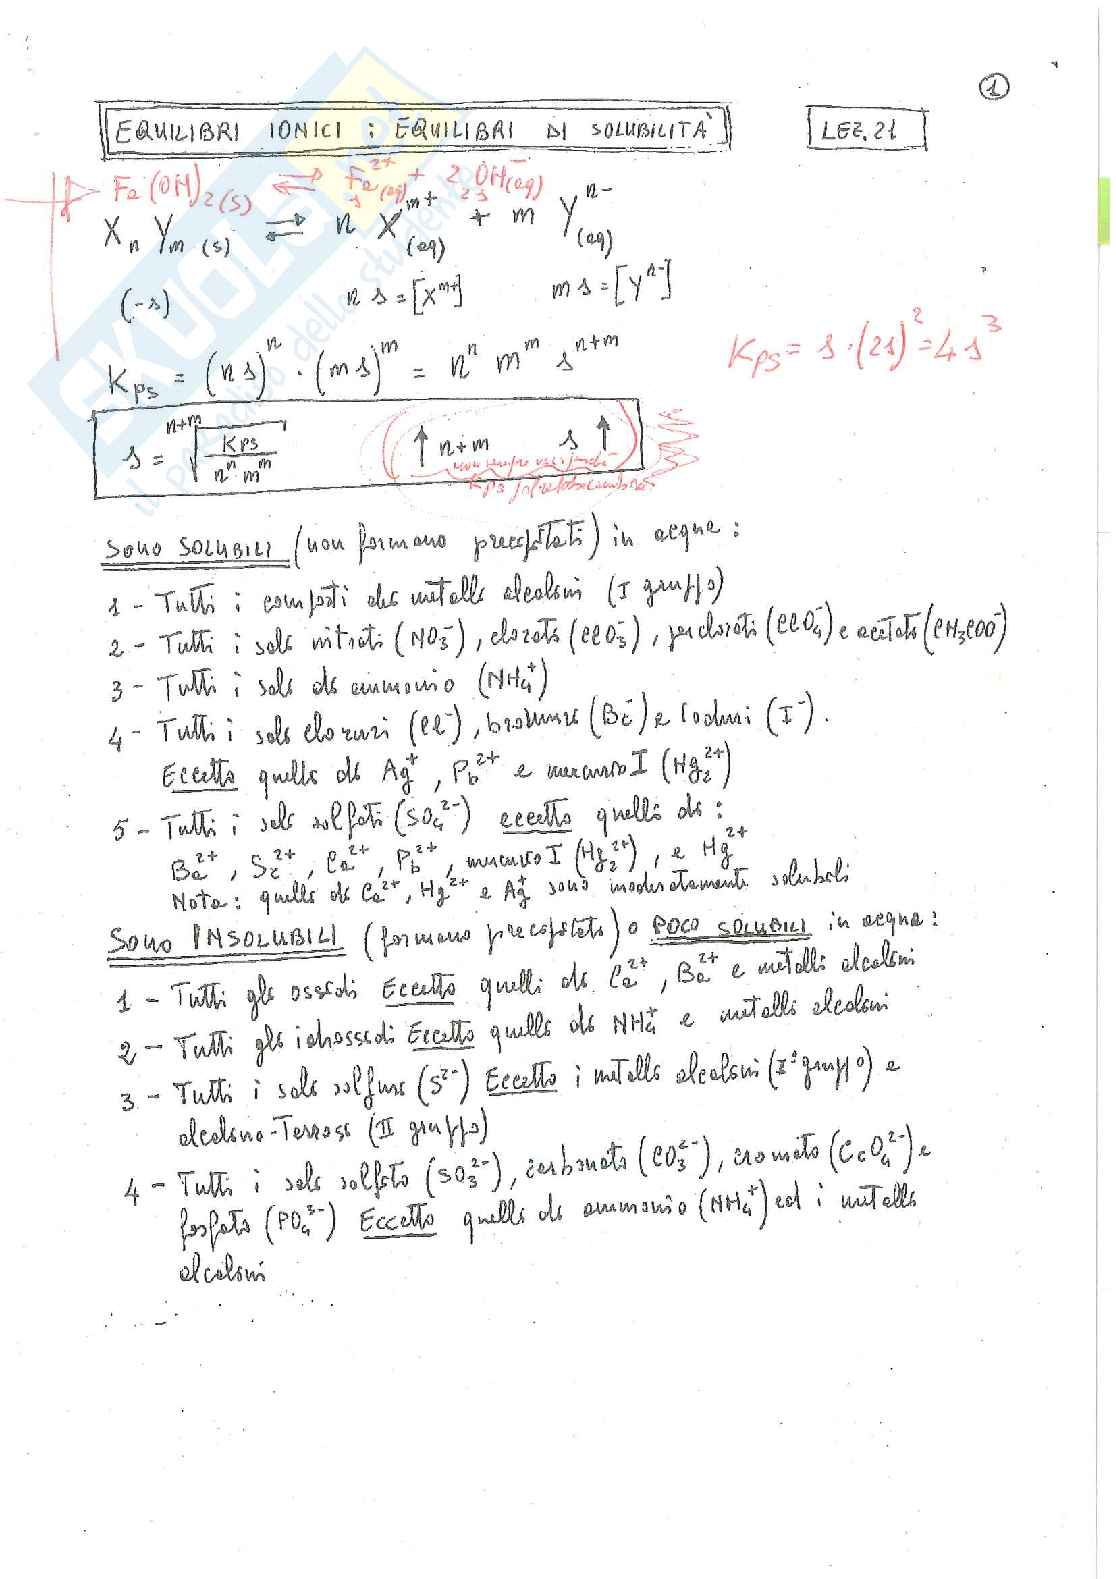 1
EQUILIBRI IONICI : EQUILIBRI DI SOLUBILITÀ
LEZ. 21
Fe(OH)2(s) ⇌ Fe2+(aq) + 2 OH-(aq)
s 2s
Xn Ym (s) ⇌ n X^m+ (aq) + m Y^n- (aq)
(-s) n s = [X^m+] m s = [Y^n-]
Kps = (n s)^n · (m s)^m = n^n m^m s^n+m
Kps = s · (2s)^2 = 4 s^3
s = n+m√(Kps / n^n m^m) ↑ n+m s ↑
Kps
SONO SOLUBILI (non formano precipitati) in acqua :
1 - Tutti i composti dei metalli alcalini (I gruppo)
2 - Tutti i sali nitrati (NO3-), clorati (ClO3-), perclorati (ClO4-) e acetati (CH3COO-)
3 - Tutti i sali di ammonio (NH4+)
4 - Tutti i sali cloruri (Cl-), bromuri (Br-) e ioduri (I-).
Eccetto quelli di Ag+, Pb2+ e mercurio I (Hg2 2+)
5 - Tutti i sali solfati (SO4 2-) eccetto quelli di :
Ba2+, Sr2+, Ca2+, Pb2+, mercurio I (Hg2 2+), e Hg2+
Nota : quelli di Ca2+, Hg2+ e Ag+ sono moderatamente solubili
SONO INSOLUBILI (formano precipitato) o POCO SOLUBILI in acqua :
1 - Tutti gli ossidi Eccetto quelli di Ca2+, Ba2+ e metalli alcalini
2 - Tutti gli idrossidi Eccetto quelli di NH4+ e metalli alcalini
3 - Tutti i sali solfuri (S2-) Eccetto i metalli alcalini (I° gruppo) e
alcalino-Terrosi (II gruppo)
4 - Tutti i sali solfito (SO3 2-), carbonato (CO3 2-), cromato (CrO4 2-) e
fosfato (PO4 3-) Eccetto quelli di ammonio (NH4+) ed i metalli
alcalini